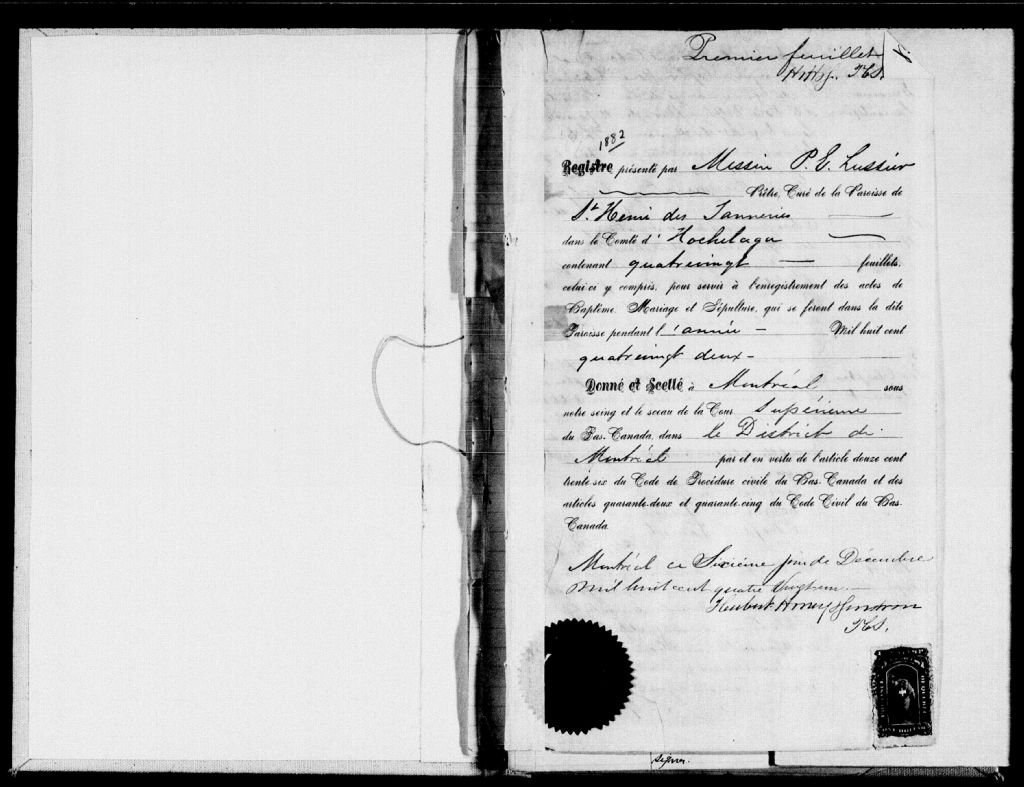 Premier feuillet
HHG. PCS.
1.
1882
Registre présenté par Messire P. E. Lussier
Prêtre, Curé de la Paroisse de
St. Henri des Tanneries
dans le Comté d' Hochelaga
contenant quatrevingt feuillets,
celui-ci y compris, pour servir à l'enregistrement des actes de
Baptême, Mariage et Sépulture, qui se feront dans la dite
Paroisse pendant l'année Mil huit cent
quatrevingt deux
Donné et Scellé à Montréal sous
notre seing et le sceau de la Cour Supérieure
du Bas-Canada, dans le District de
Montréal par et en vertu de l'article douze cent
trente-six du Code de Procédure civile du Bas-Canada et des
articles quarante-deux et quarante-cinq du Code Civil du Bas-
Canada.
Montréal ce Sixième jour de Décembre
mil huit cent quatre vingt un
PCS.
ONE DOLLAR
signer.